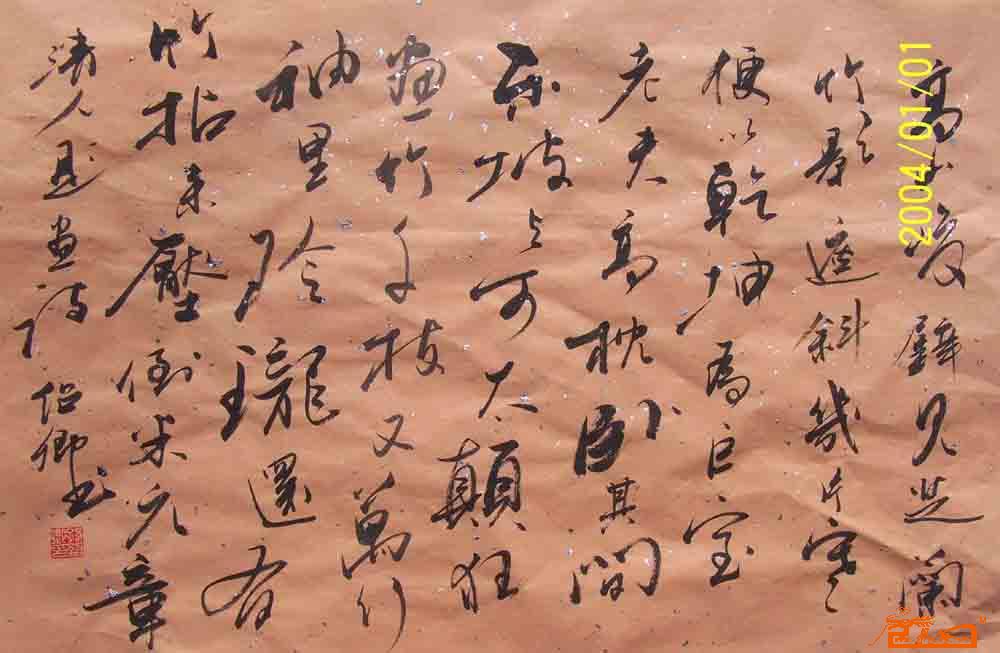 高山峻壁見芝蘭
竹影遮斜幾片寒
便以乾坤為巨室
老夫高枕臥其間
東坡与可太顛狂
畫竹千枝又萬行
袖里玲瓏還有
竹拈来壓倒米元章
清人題畫詩 侶卿书
2004/01/01